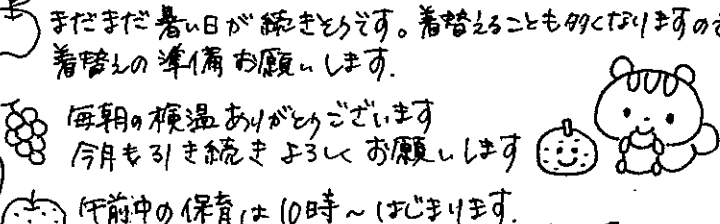 まだまだ暑い日が続きそうです。着替えることも多くなりますので
着替えの準備お願いします.
毎朝の検温ありがとうございます
今月も引き続きよろしくお願いします
午前中の保育は10時～はじまります.